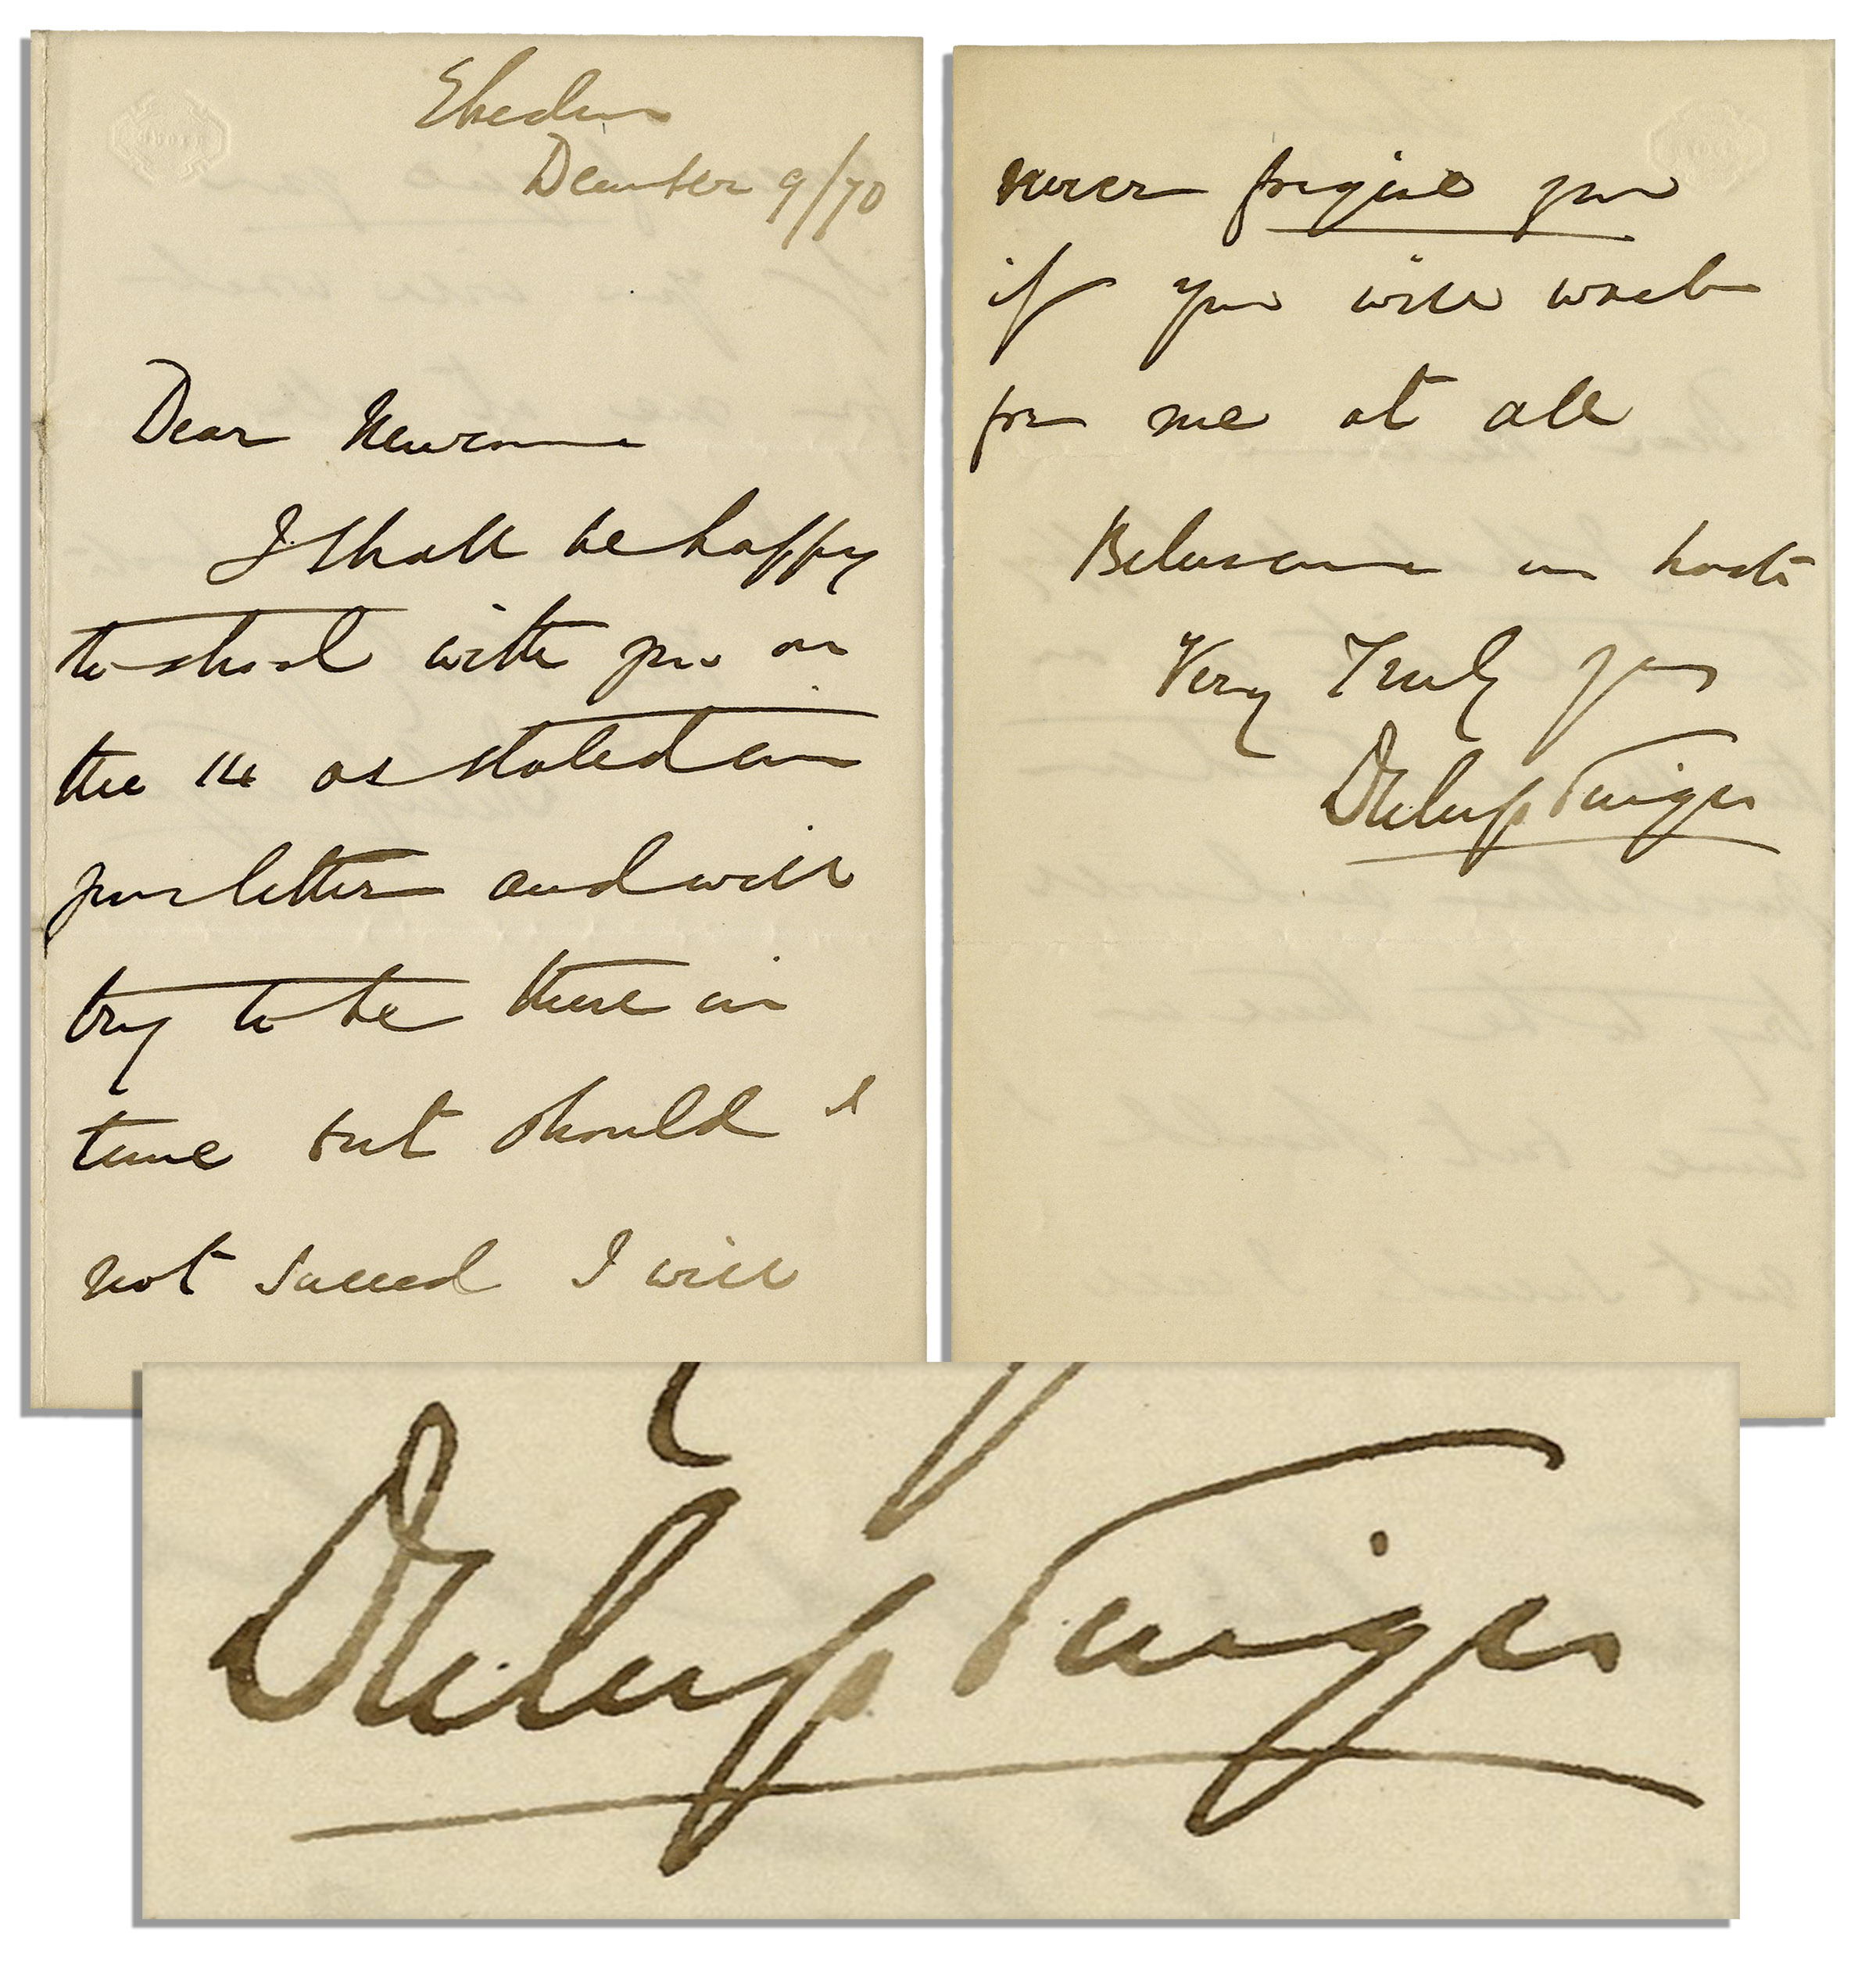 December 9/70
Dear Newcome
I shall be happy
to shoot with you on
the 14 as stated in
your letter and will
try to be there in
time but should I
not succeed I will
never forgive you
if you will wait
for me at all
Believe me in haste
Very Truly yours
Duleep Singh
Duleep Singh